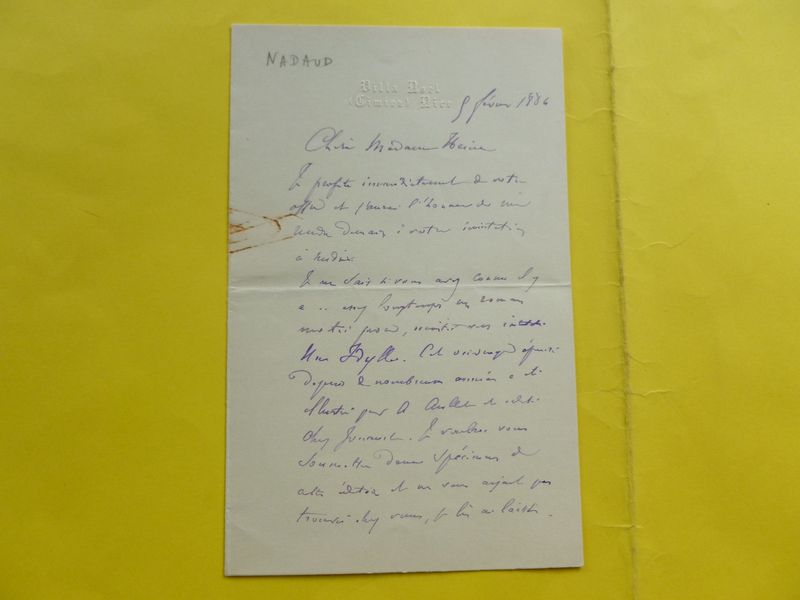 NADAUD
Villa Noël
(Cimiez) Nice
9 février 1886
Chère Madame Heine
Je profite immédiatement de votre
offre et j'aurai l'honneur de me
rendre demain à votre invitation
à midi.
Je ne sais si vous avez connu il y
a assez longtemps un roman
moitié prose, moitié vers intitulé
Une Idylle. Cet ouvrage épuisé
depuis de nombreuses années a été
illustré par A et édité
chez Jouaust. Je voudrais vous
soumettre deux spécimens de
cette édition et ne vous ayant pas
trouvée chez vous, je les ai laissés.